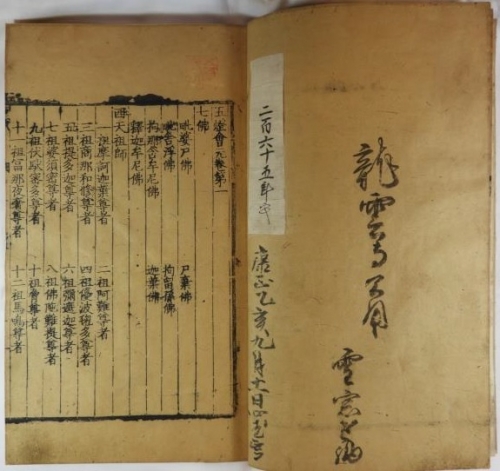 龍雲寺
二百六十五年
康正乙亥九月十一日
五燈會元卷第一
七佛
毗婆尸佛 尸棄佛
毗舍浮佛 拘留孫佛
拘那含牟尼佛 迦葉佛
釋迦牟尼佛
西天祖師
一祖摩訶迦葉尊者 二祖阿難尊者
三祖商那和修尊者 四祖優波毱多尊者
五祖提多迦尊者 六祖彌遮迦尊者
七祖婆須蜜尊者 八祖佛陀難提尊者
九祖伏馱蜜多尊者 十祖脅尊者
十一祖富那夜奢尊者 十二祖馬鳴尊者